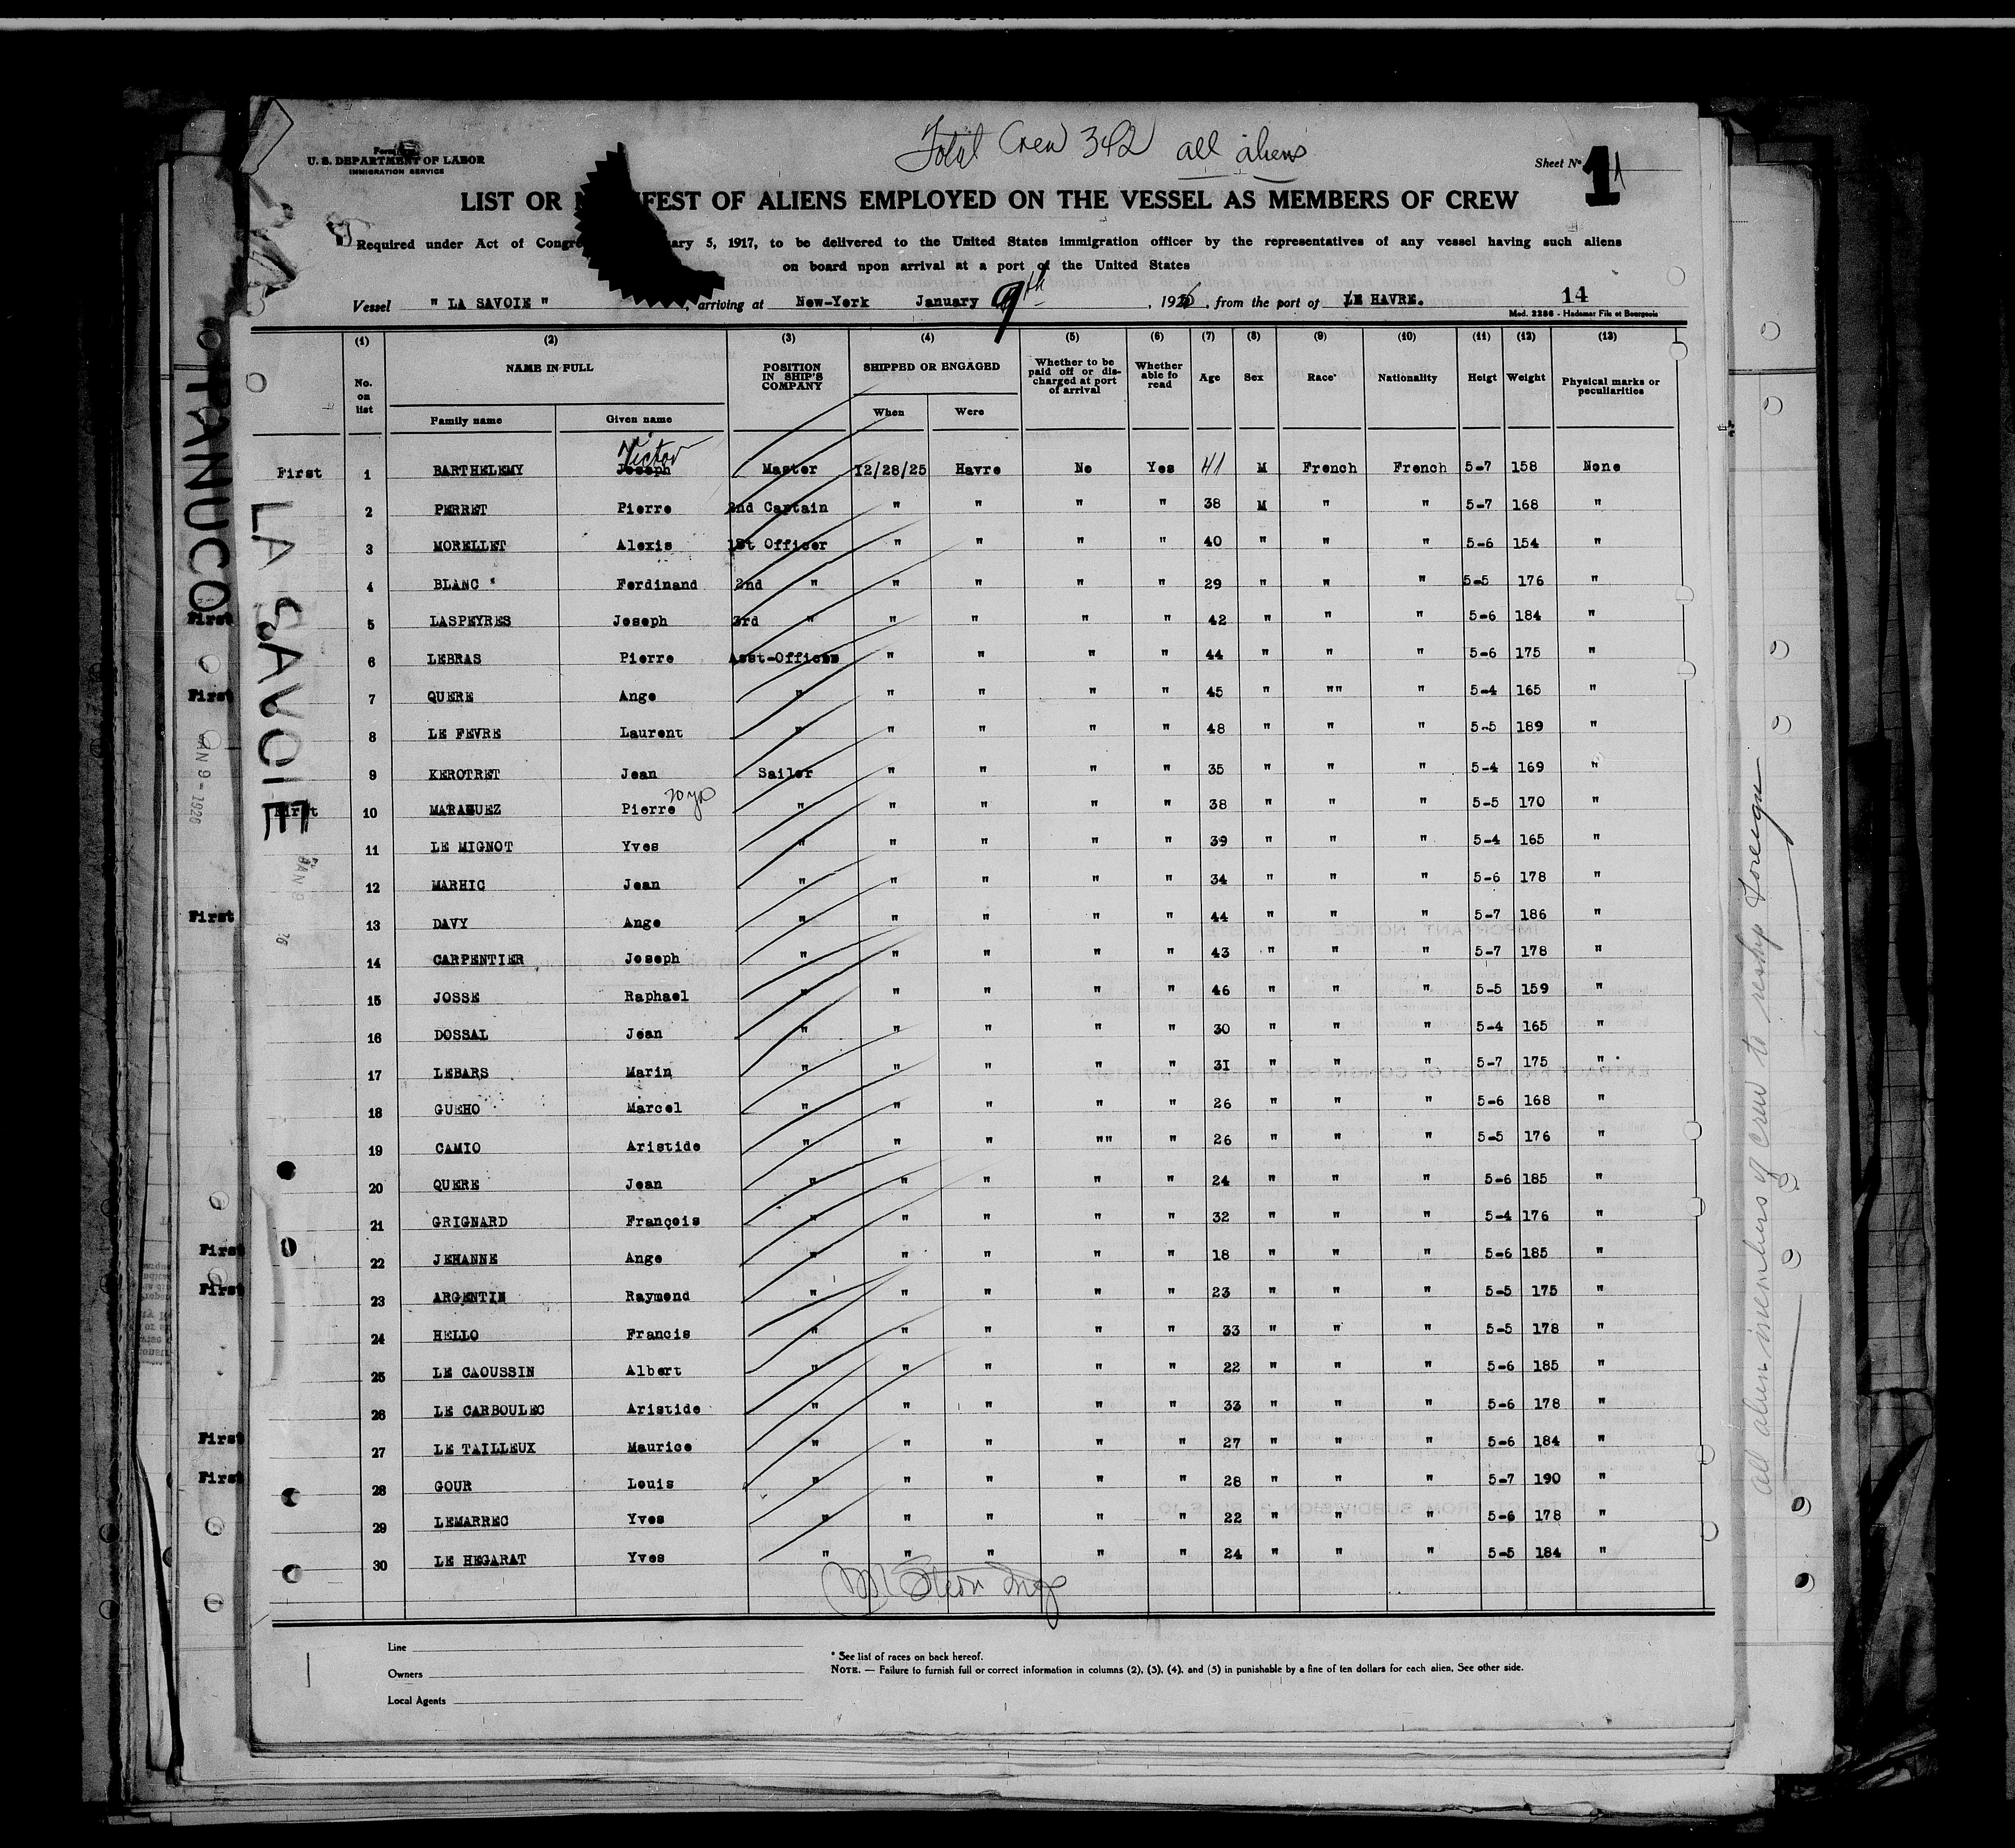 Total Crew 342 all aliens
Form
U. S. DEPARTMENT OF LABOR
IMMIGRATION SERVICE
Sheet No 1
LIST OR FEST OF ALIENS EMPLOYED ON THE VESSEL AS MEMBERS OF CREW
Required under Act of Congre ary 5, 1917, to be delivered to the United States immigration officer by the representatives of any vessel having such aliens
on board npon arrival at a port of the United States
Vessel " LA SAVOIE ", arriving at New-York January 9th, 1926, from the port of LE HAVRE. 14
Mod. 2286 - Hademar Fils et Bourgeois
(1) (2) (3) (4) (5) (6) (7) (8) (9) (10) (11) (12) (13)
No. on list NAME IN FULL POSITION IN SHIP'S COMPANY SHIPPED OR ENGAGED Whether to be paid off or discharged at port of arrival Whether able fo read Age Sex Race* Nationality Heigt Weight Physical marks or peculiarities
Family name Given name When Were
Victor
First 1 BARTHELEMY Joseph Master I2/28/25 Havre No Yes 41 M French French 5-7 158 None
2 PERRET Pierre 2nd Captain " " " " 38 M " " 5-7 168 "
3 MORELLET Alexis 1St Officer " " " " 40 " " " 5-6 154 "
4 BLANC Ferdinand 2nd " " " " " 29 " " " 5-5 176 "
First 5 LASPEYRES Joseph 3rd " " " " " 42 " " " 5-6 184 "
6 LEBRAS Pierre Asst-Officer " " " " 44 " " " 5-6 175 "
First 7 QUERE Ange " " " " " 45 " "" " 5-4 165 "
8 LE FEVRE Laurent " " " " " 48 " " " 5-5 189 "
9 KEROTRET Jean Sailor " " " " 35 " " " 5-4 169 "
20 yrs
First 10 MARAGUEZ Pierre " " " " " 38 " " " 5-5 170 "
11 LE MIGNOT Yves " " " " " 39 " " " 5-4 165 "
12 MARHIC Jean " " " " " 34 " " " 5-6 178 "
First 13 DAVY Ange " " " " " 44 " " " 5-7 186 "
14 CARPENTIER Joseph " " " " " 43 " " " 5-7 178 "
15 JOSSE Raphael " " " " " 46 " " " 5-5 159 "
16 DOSSAL Jean " " " " " 30 " " " 5-4 165 "
17 LEBARS Marin " " " " " 3I " " " 5-7 175 "
18 GUEHO Marcel " " " " " 26 " " " 5-6 168 "
19 CAMIO Aristide " " " "" " 26 " " " 5-5 176 "
20 QUERE Jean " " " " " 24 " " " 5-6 185 "
21 GRIGNARD François " " " " " 32 " " " 5-4 176 "
First 22 JEHANNE Ange " " " " " 18 " " " 5-6 185 "
First 23 ARGENTIN Raymond " " " " " 23 " " " 5-5 175 "
24 HELLO Francis " " " " " 33 " " " 5-5 178 "
25 LE CAOUSSIN Albert " " " " " 22 " " " 5-6 185 "
26 LE CARBOULEC Aristide " " " " " 33 " " " 5-6 178 "
First 27 LE TAILLEUX Maurice " " " " " 27 " " " 5-6 184 "
First 28 GOUR Louis " " " " " 28 " " " 5-7 190 "
29 LEMARREC Yves " " " " " 22 " " " 5-6 178 "
30 LE HEGARAT Yves " " " " " 24 " " " 5-5 184 "
Line
Owners
Local Agents
* See list of races on back hereof.
NOTE. — Failure to furnish full or correct information in columns (2), (3), (4), and (5) in punishable by a fine of ten dollars for each alien. See other side.
PANUCO
LA SAVOIE
JAN 9 - 1926
all alien members of crew to reship Foreign